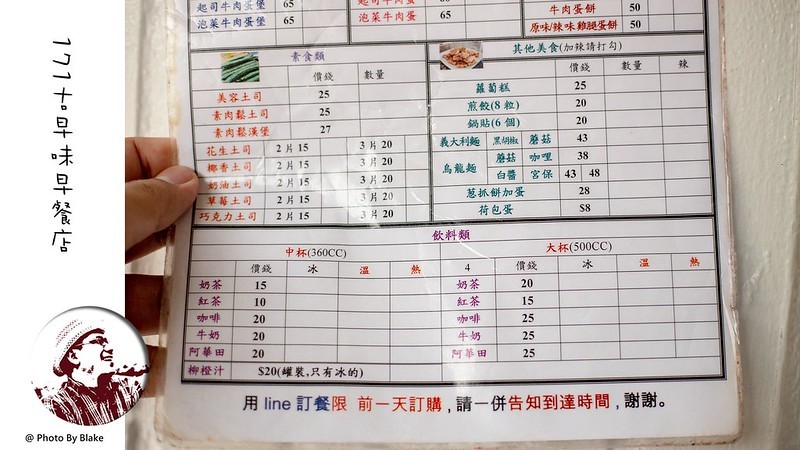 171古早味早餐店
@ Photo By Blake
起司牛肉蛋堡 65
泡菜牛肉蛋堡 65
起司牛肉蛋 60
泡菜牛肉蛋 65
牛肉蛋餅 50
原味/辣味雞腿蛋餅 50
素食類
價錢 數量
美容土司 25
素肉鬆土司 25
素肉鬆漢堡 27
花生土司 2 片 15 3 片 20
椰香土司 2 片 15 3 片 20
奶油土司 2 片 15 3 片 20
草莓土司 2 片 15 3 片 20
巧克力土司 2 片 15 3 片 20
其他美食(加辣請打勾)
價錢 數量 辣
蘿蔔糕 25
煎餃(8 粒) 20
鍋貼(6 個) 20
義大利麵 黑胡椒 蘑菇 43
烏龍麵 蘑菇 咖哩 38
白醬 宮保 43 48
蔥抓餅加蛋 28
荷包蛋 $8
飲料類
中杯(360CC) 大杯(500CC)
價錢 冰 溫 熱 4 價錢 冰 溫 熱
奶茶 15 奶茶 20
紅茶 10 紅茶 15
咖啡 20 咖啡 25
牛奶 20 牛奶 25
阿華田 20 阿華田 25
柳橙汁 $20(罐裝,只有冰的)
用 line 訂餐限 前一天訂購,請一併告知到達時間,謝謝。